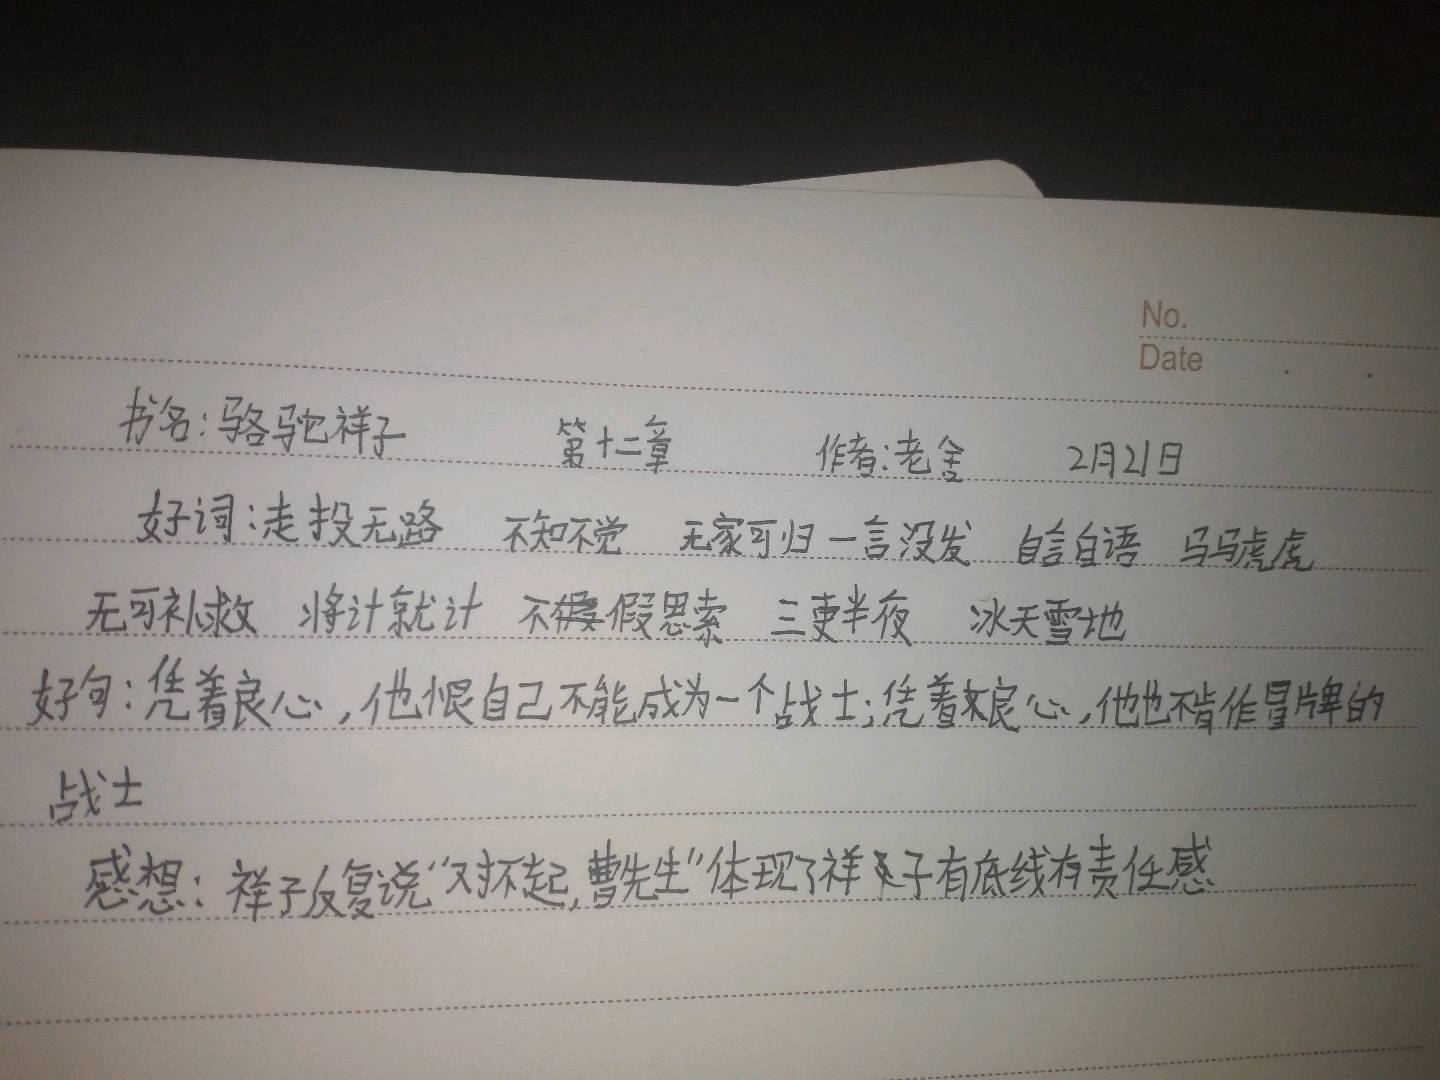 No.
Date
书名:骆驼祥子 第十二章 作者:老舍 2月21日
好词:走投无路 不知不觉 无家可归 一言没发 自言自语 马马虎虎
无可补救 将计就计 不假思索 三更半夜 冰天雪地
好句:凭着良心,他恨自己不能成为一个战士;凭着良心,他也不肯作冒牌的
战士
感想:祥子反复说“对不起,曹先生”体现了祥子有底线有责任感